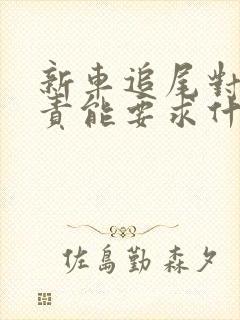 新車追尾對
責能要求什
佐島勤 森夕